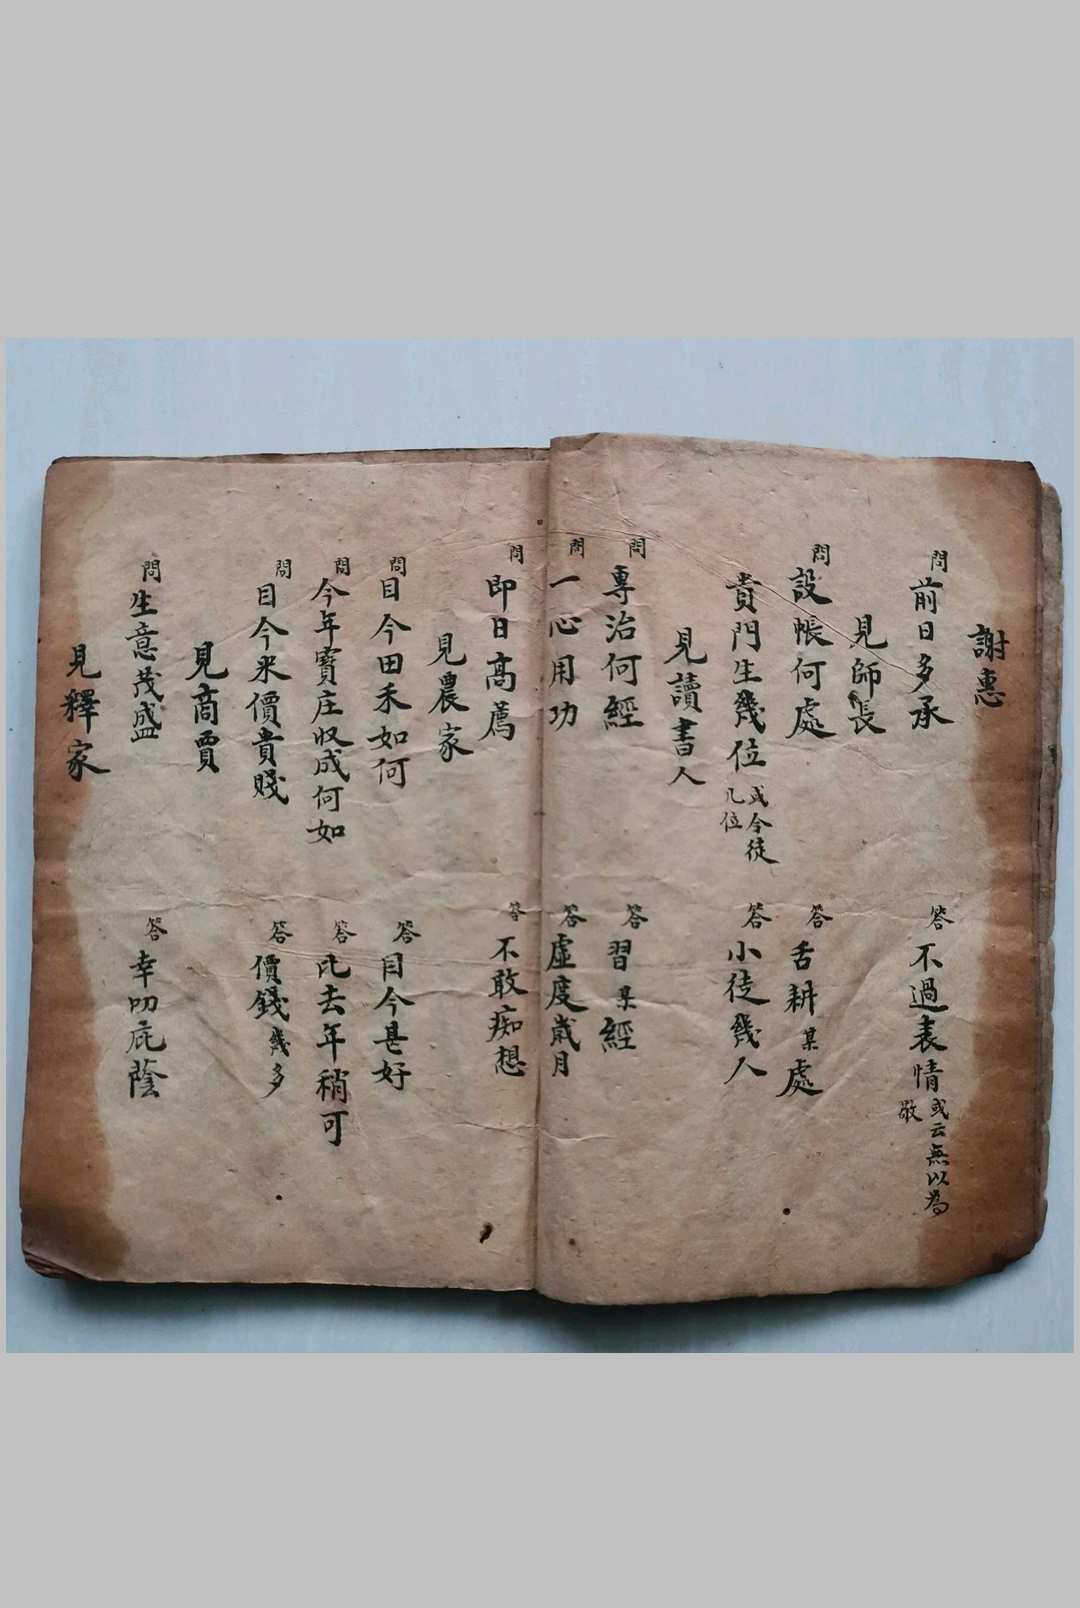 謝惠
問 前日多承 答 不過表情 或云無以為敬
見師長
問 設帳何處 答 舌耕某處
貴門生幾位 或令徒几位 答 小徒幾人
見讀書人
問 專治何經 答 習某經
問 一心用功 答 虛度歲月
問 即日高薦 答 不敢痴想
見農家
問 目今田禾如何 答 目今是好
問 今年寶庄收成何如 答 比去年稍可
問 目今米價貴賤 答 價錢幾多
見商賈
問 生意茂盛 答 幸叨庇蔭
見釋家